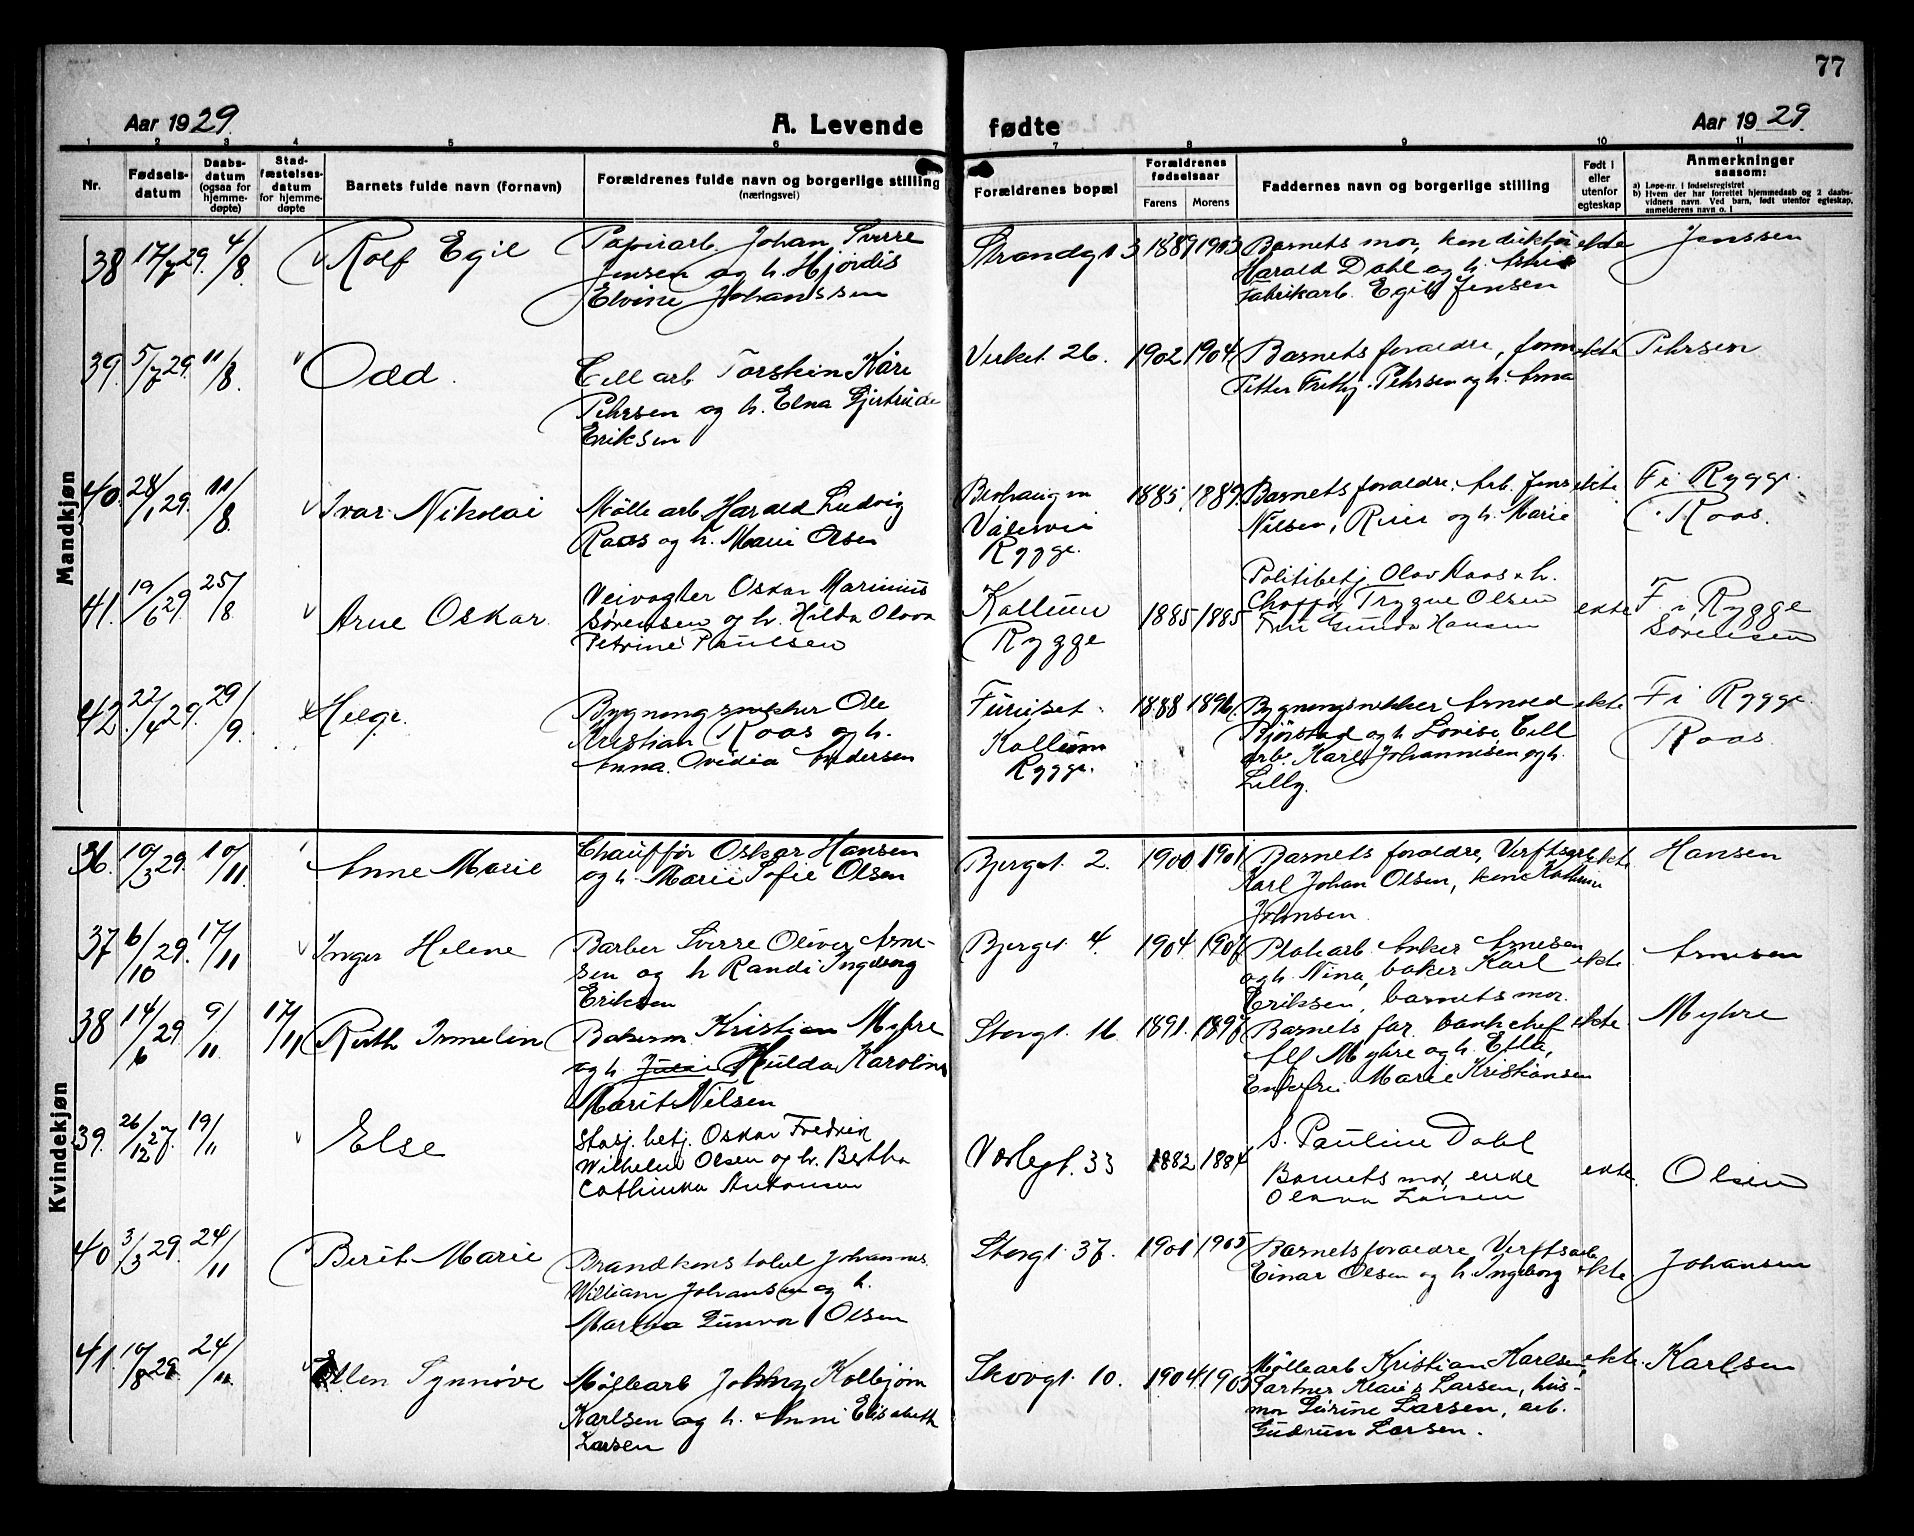 77
Aar 1929. A. Levende fødte Aar 1929
1 2 3 4 5 6 7 8 9 10 11
Nr.
Fødselsdatum
Daabsdatum (ogsaa for hjemmedøpte)
Stadfæstelsesdatum for hjemmedøpte
Barnets fulde navn (fornavn)
Forældrenes fulde navn og borgerlige stilling
(næringsvei)
Forældrenes bopæl
Forældrenes fødselsaar
Farens Morens
Faddernes navn og borgerlige stilling
Født i eller utenfor egteskap
Anmerkninger saasom:
a) Løpe-nr. i fødselsregistret
b) Hvem der har forrettet hjemmedaab og 2 daabsvidners navn. Ved barn, født utenfor egteskap, anmelderens navn o. l
Mandkjøn
38 17/7 29. 4/8. Rolf Egil
Papirarb. Johan Sverre
Jensen og h. Hjørdis
Elvine Johanssen
Strandgt 3 1889 1903
Barnets mor, konduktør
Harald Dahl og h.
Fabrikarb. Egil Jensen
ekte Jenssen
39. 5/7 29. 11/8. Odd.
Cell arb. Torstein Kåre
Pehrsen og h. Elna Gjertrude
Eriksen
Virket 26. 1902 1904
Barnets foraeldre, form
Petter Frithj. Pehrsen og h. Arna
ekte Pehrsen
40. 28/1 29. 11/8 Ivar Nikolai
Mølle arb Harald Ludvig
Roos og h. Marie Olsen
Våleveien
Rygge.
1885, 1889
Barnets foraeldre. Arb. Jens
Nilsen, Rier og h. Marie
ekte F i Rygge.
Roos.
41. 19/6 29 25/8 Arne Oskar.
Veivogter Oskar Marinius
Sørensen og h. Hilda Olova
Petrine Paulsen
Kallum
Rygge
1885 1885
Politibetj. Olav Roos & h.
Chaffør Trygve Olsen
Fru Gunda Hansen
ekte F. i Rygge
Sørensen
42. 22/4 29. 29/9. Helge.
Bygningssnekker Ole
Kristian Roos og h.
Anna Ovidia Andersen
Furuset.
Kallum
Rygge.
1888 1896
Bygningsnekker Arnold
Bjørstad og h Lovise, Cell
arb. Karl Johannesen og h.
Lilly.
ekte F i Rygge.
Roos
Kvindekjøn
36. 10/3 29. 10/11. Anne Marie
Chauffør Oskar Hansen
og h. Marie Sofie Olsen
Bjergt. 2. 1900 1901
Barnets foraeldre, Verftsarb.
Karl Johan Olsen,
Johnsen.
ekte Hansen
37 6/10 29. 17/11 Inger Helene
Barber Sverre Oliver Arne-
sen og h Randi Ingeborg
Eriksen
Bjergt. 4. 1904
Platearb. Anker Arnesen
og h. Nina, baker Karl
Eriksen, barnets mor.
ekte Arnesen
38 14/6 29 9/11 17/11 Ruth Irmelin
Bakerm. Kristian Myhre
og h. Hulda Karoline
Marit Nilsen
Storgt. 16 1891.
Barnets far, bankchef
Alf Myhre og h. Etla,
Enkefru Marie Kristiansen
ekte Myhre
39. 26/12 27. 19/11 Else
Stasj. betj. Oskar Fredrik
Wilhelm Olsen og h. Bertha
Cathinka Antonsen
Varlegt. 33 1882 1884
S. Pauline Dahl
Barnets mor, enke
Olava Larsen
ekte. Olsen
40 3/3 29. 24/11 Berit Marie
Brandkonstabel Johannes
William Johansen og h.
Martha Gunvor Olsen
Storgt. 37. 1901 1905
Barnets foraeldre, Verftsarb.
Einar Olsen og h. Ingeborg
ekte Johansen
41. 10/8 29. 24/11. Ellen Synnøve
Møllearb Johnny Kolbjørn
Karlsen og h. Anni Elisabeth
Larsen
Skovgt. 10. 1904. 1905
Møllearb Kristian Karlsen,
Gartner Klaus Larsen, hus-
mor Gurine Larsen, arb.
Gudrun Larsen.
ekte. Karlsen